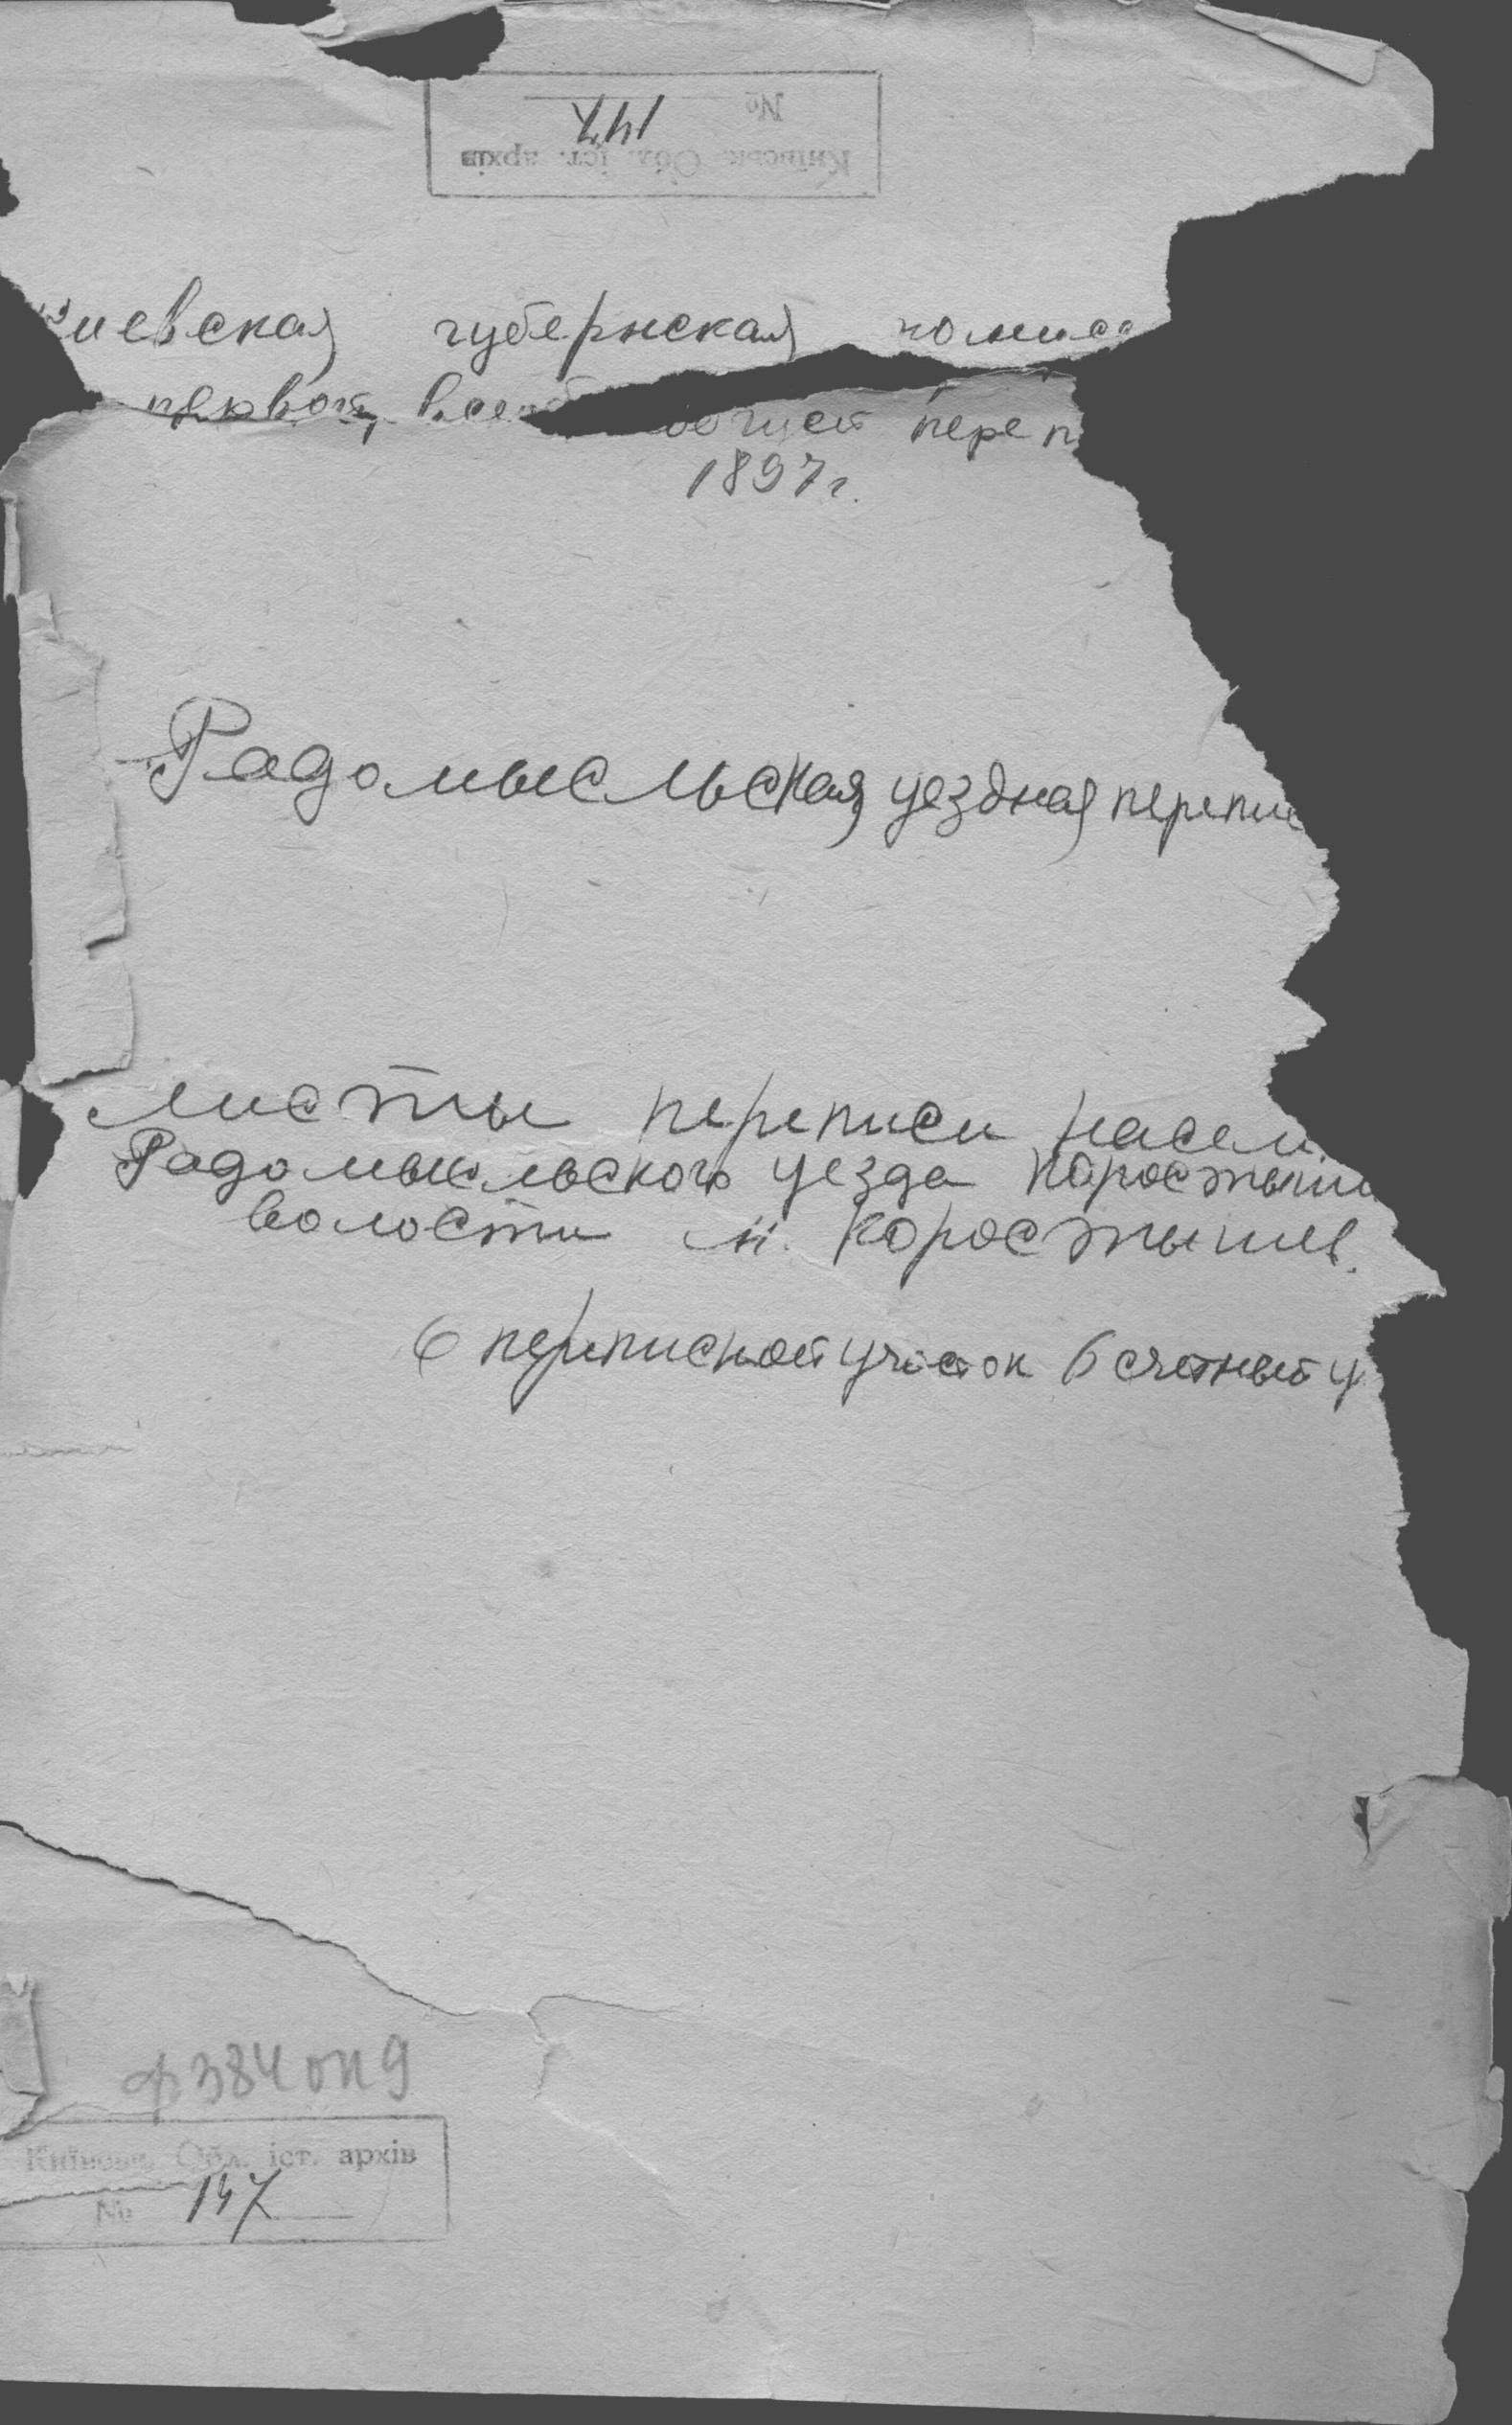 № 147
Київськ. Обл. іст. архів
Киевская губернская комисс
первой, всеоб общей переп
1897 г.
Радомысльская уездная перепис
Листы переписи насел.
Радомысльского уезда Коростыш
волости м. Коростышев.
6 переписной участок 6 счетный у
ф 384 оп 9
Київськ. Обл. іст. архів
№ 147